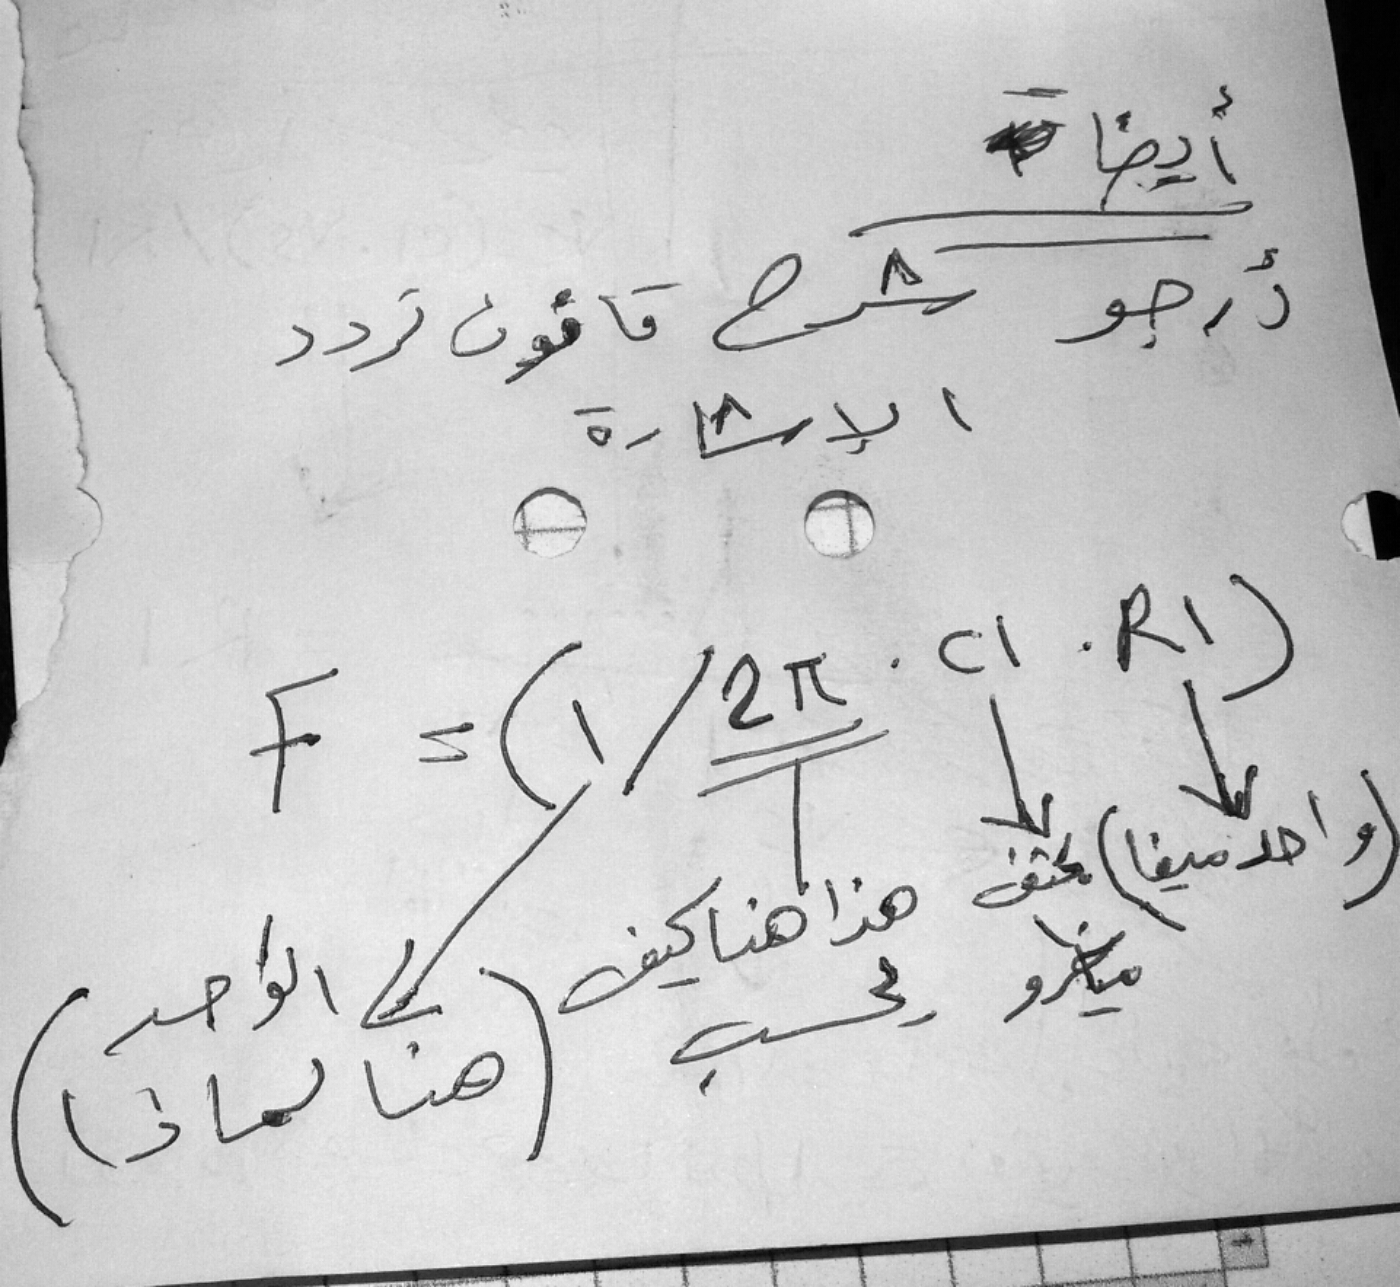 أيضاً
أرجو شرح قانون تردد
الإشارة
F = (1/2π . C1 . R1)
(واحد ميغا) مكثف هذا هنا كيف
ميكرو يحسب
الواحد
(هنا لماذا)